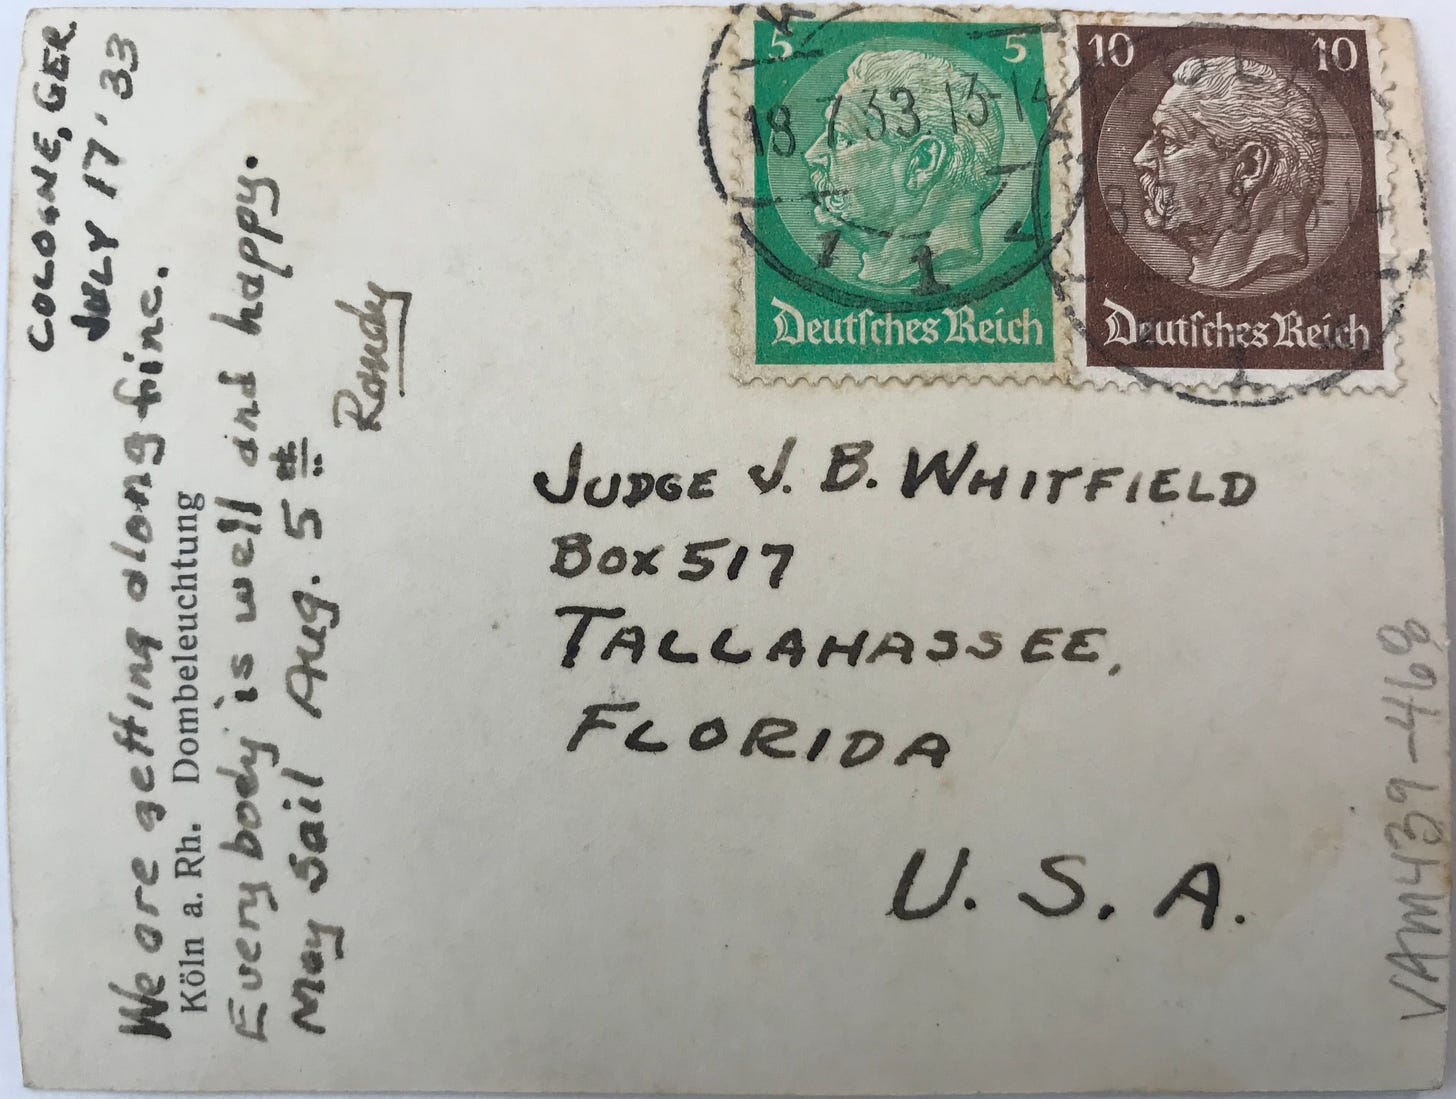 COLOGNE, GER.
JULY 17. 33
We are getting along fine.
Köln a. Rh. Dombeleuchtung
Every body is well and happy.
May sail Aug. 5th
Randy
5 5
Deutsches Reich
10 10
Deutsches Reich
18.7.33.13-14
1
JUDGE J. B. WHITFIELD
BOX 517
TALLAHASSEE,
FLORIDA
U. S. A.
VAM439-468